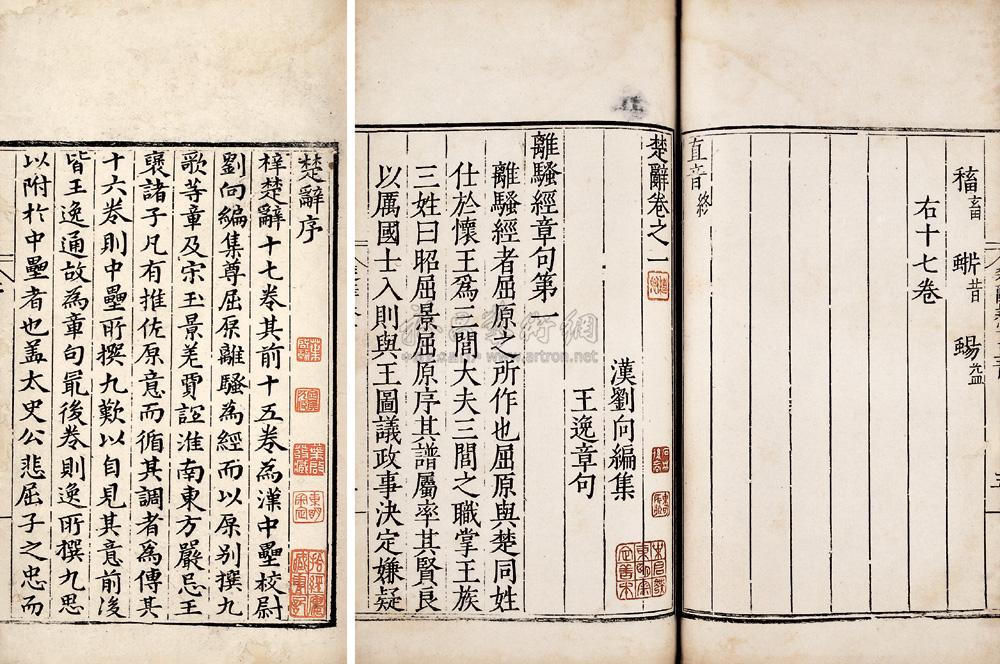 楚辭序
梓楚辭十七卷其前十五卷為漢中壘校尉
劉向編集尊屈原離騷為經而以原别撰九
歌等章及宋玉景差賈誼淮南東方嚴忌王
襃諸子凡有推佐原意而循其調者為傳其
十六卷則中壘所撰九歎以自見其意前後
皆王逸通故為章句最後卷則逸所撰九思
以附於中壘者也盖太史公悲屈子之忠而
稸畜 䗩昔 蜴益
右十七卷
直音終
楚辭卷之一
漢劉向編集
王逸章句
離騷經章句第一
離騷經者屈原之所作也屈原與楚同姓
仕於懷王爲三閭大夫三閭之職掌王族
三姓曰昭屈景屈原序其譜屬率其賢良
以厲國士入則與王圖議政事決定嫌疑
www.artron.net